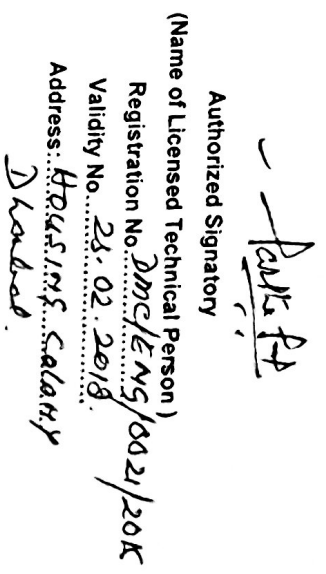 Authorized Signatory
(Name of Licensed Technical Person)
Registration No. DMC/ENG/0021/2015
Validity No. 25.02.2018.
Address: HOUSING Colony
Dhanbad.